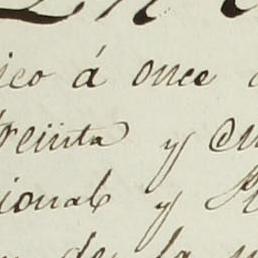 ico á once
treinta y cu
ional y
de la